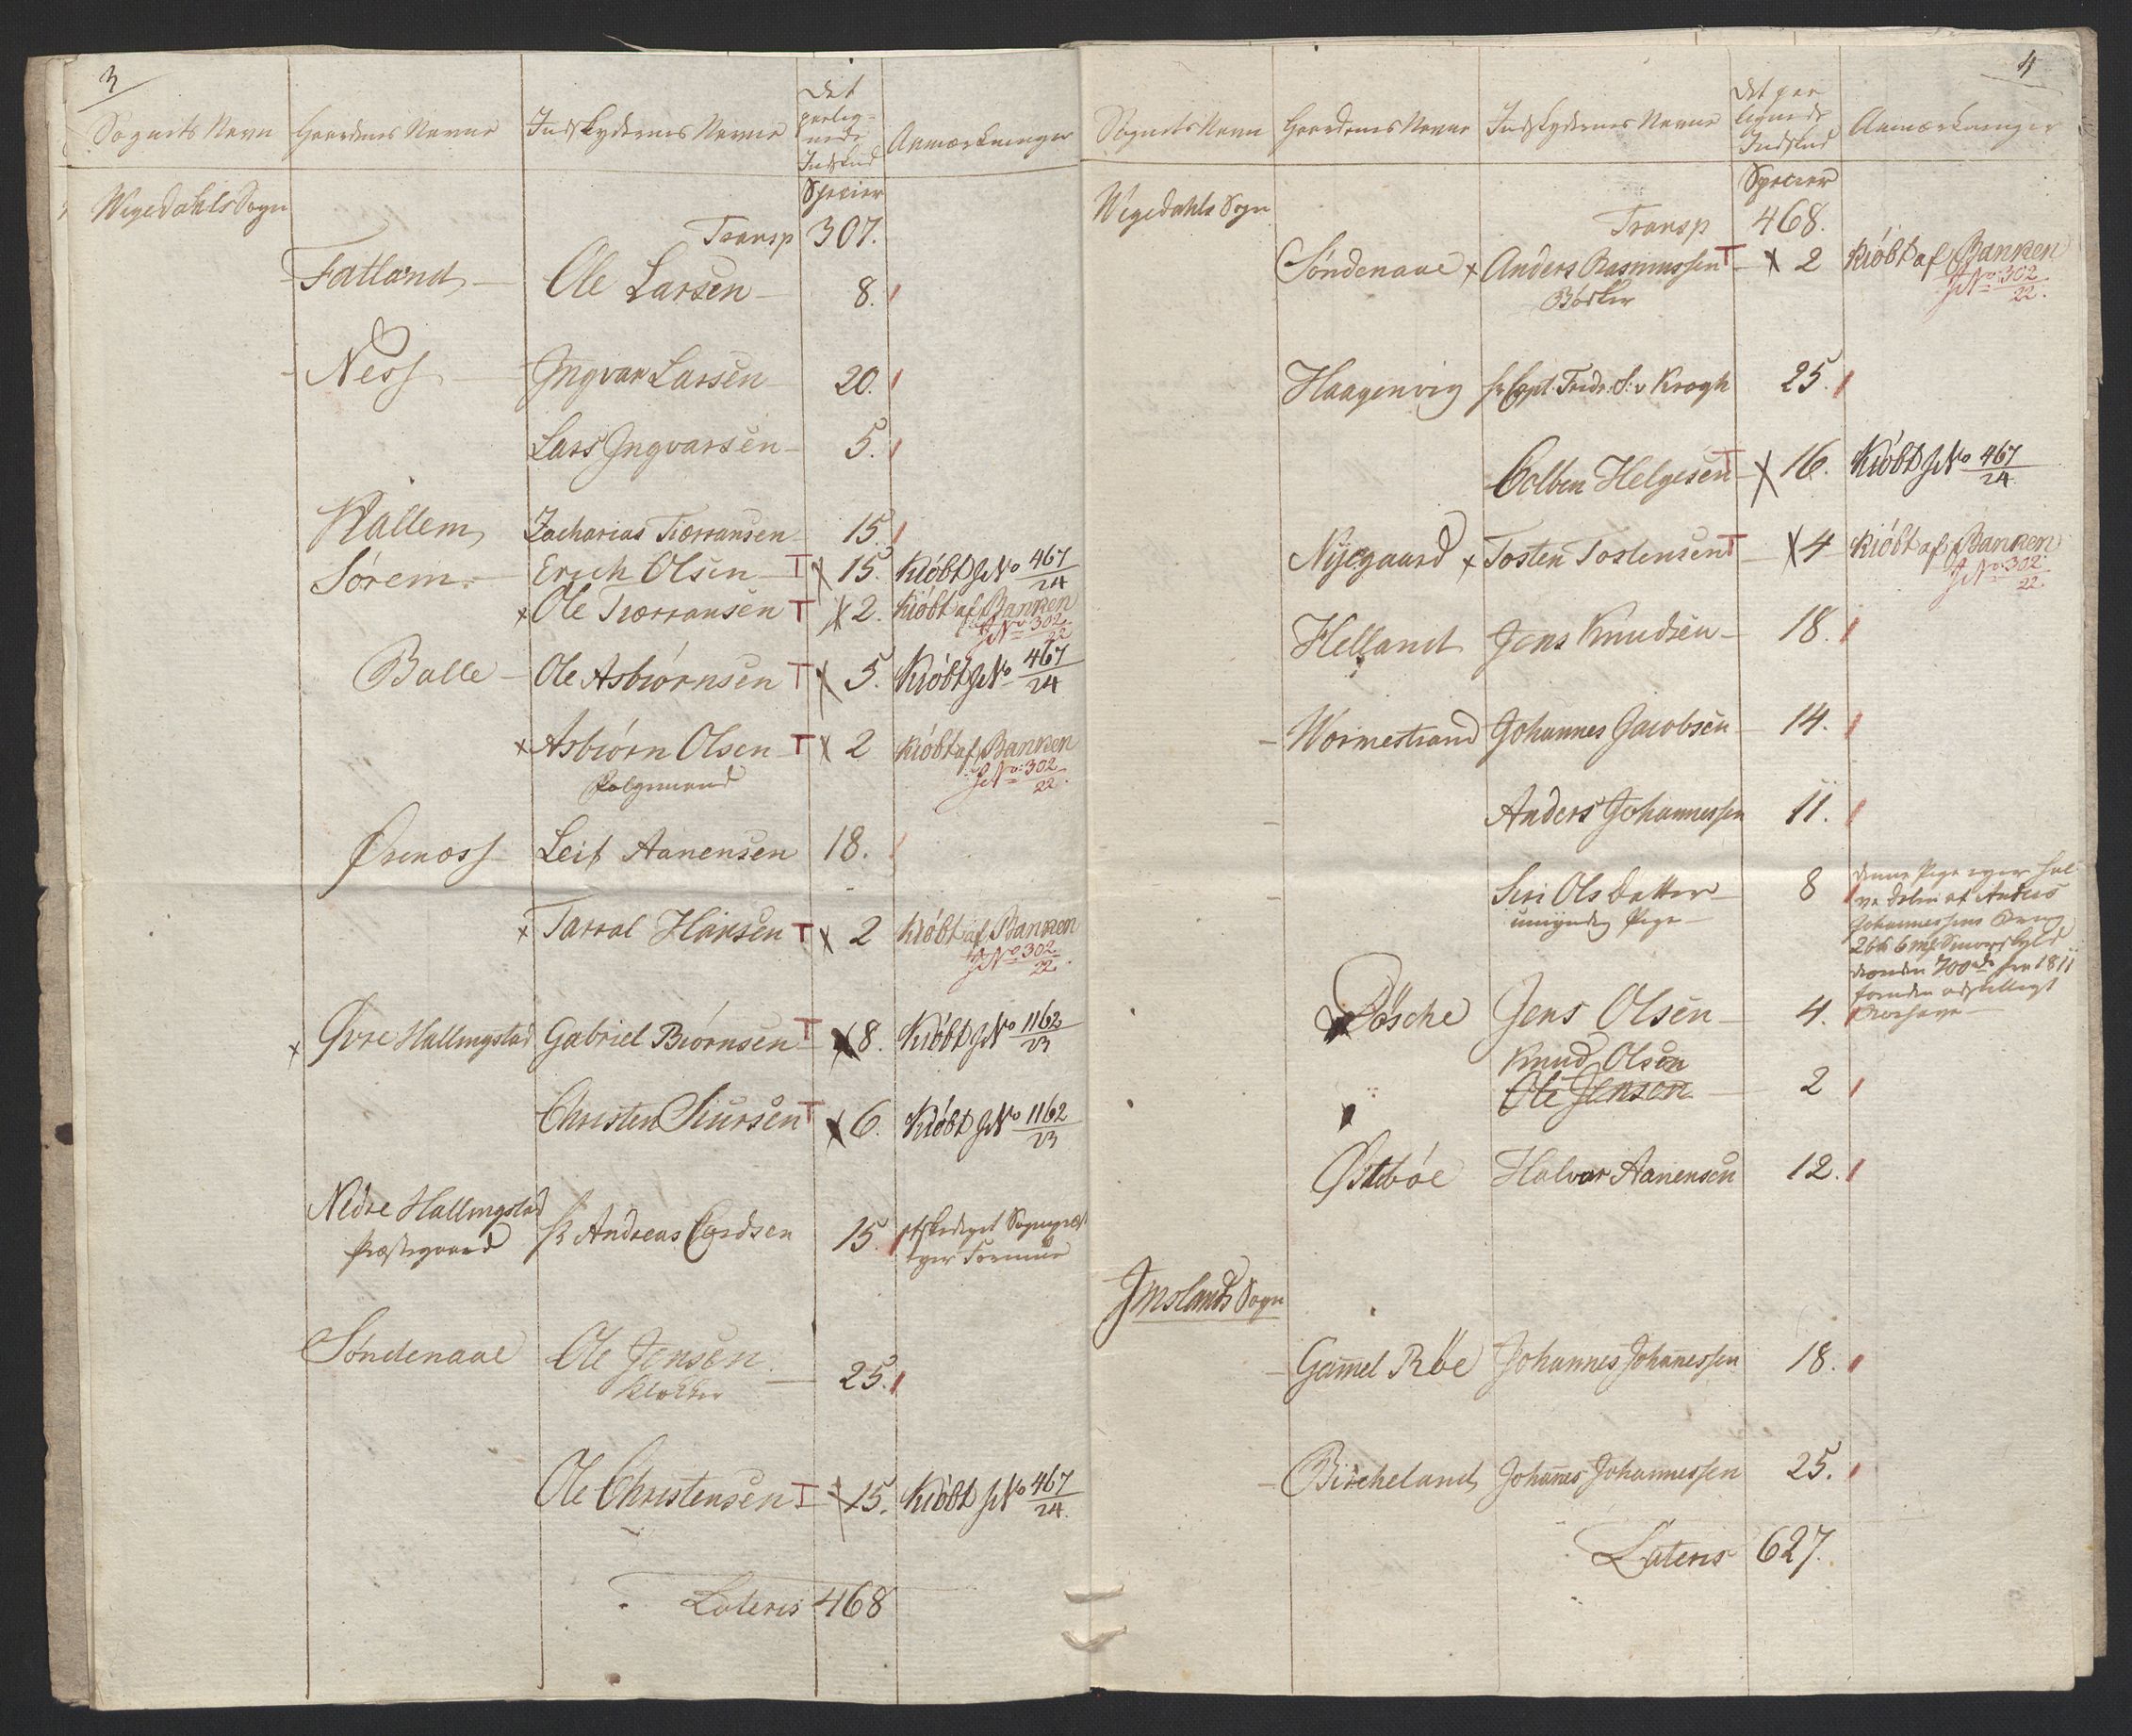 3
Sognets Navn Gaardenes Navne Indskydernes Navne Det paalig= nede Indskud Anmærkninger
Wigedahls Sogn Specier
Transp 307.
Fatland Ole Larsen 8.
Ness Ingvar Larsen 20.
Lars Ingvarsen 5.
Hallem Zacharias Tiærransen 15.
Sørem Erich Olsen T x 15. Kiöbt JNo 467/24
x Ole Tiærransen T x 2. kiöbt af Banken
JNo 302/22
Balle Ole Asbiørnsen T x 5. Kiöbt JNo 467/24
x Asbiørn Olsen T x 2 kiöbt af Banken
JNo: 302/22.
Øreness Leif Aanensen 18.
x Tarral Hansen T x 2 kiöbt af Banken
JNo 302/22.
x Øvre Hallingstad Gabriel Biørnsen T x 8. Kiöbt JNo 1162/23
Christen Siursen T x 6. Kiöbt JNo 1162/23
Nedre Hallingstad
Præstegaard Hr Andreas Gardsen 15. afskediget Sognepræst
eger Formue
Søndenaae Ole Jensen 25.
Klokker
Ole Christensen T x 15. Kiöbt JNo 467/24.
Lateris 468
4
Sognets Navn Gaardenes Navne Indskydernes Navne Det paa lignede Indskud Anmærkninger
Wigedahls Sogn Specier
Transp 468.
Søndenaae x Anders Rasmussen T x 2 kiöbt af Banken
Bødker JNo: 302/22.
Haagenvig hr Capt. Fridr: F: v Krogh 25.
Colben Helgesen T x 16. Kiöbt JNo 467/24
Nijegaard x Tosten Tostensen T x 4 kiöbt af Banken
JNo: 302/22.
Helland Jens Knudsen 18.
Wormestrand Johannes Jacobsen 14.
Anders Johannessen 11.
Siri Ols Datter 8 denne Pige eger hal
umyndig Pige ve Delen af Anders
Johannessens Brug
Jens Olsen 4.
Knud Olsen
Ole Jensen 2
Østebøe Halvor Aanensen 12.
Imslands Sogn
Gamel Røe Johannes Johanessen 18.
Bircheland Johanes Johannessen 25.
Lateris 627.